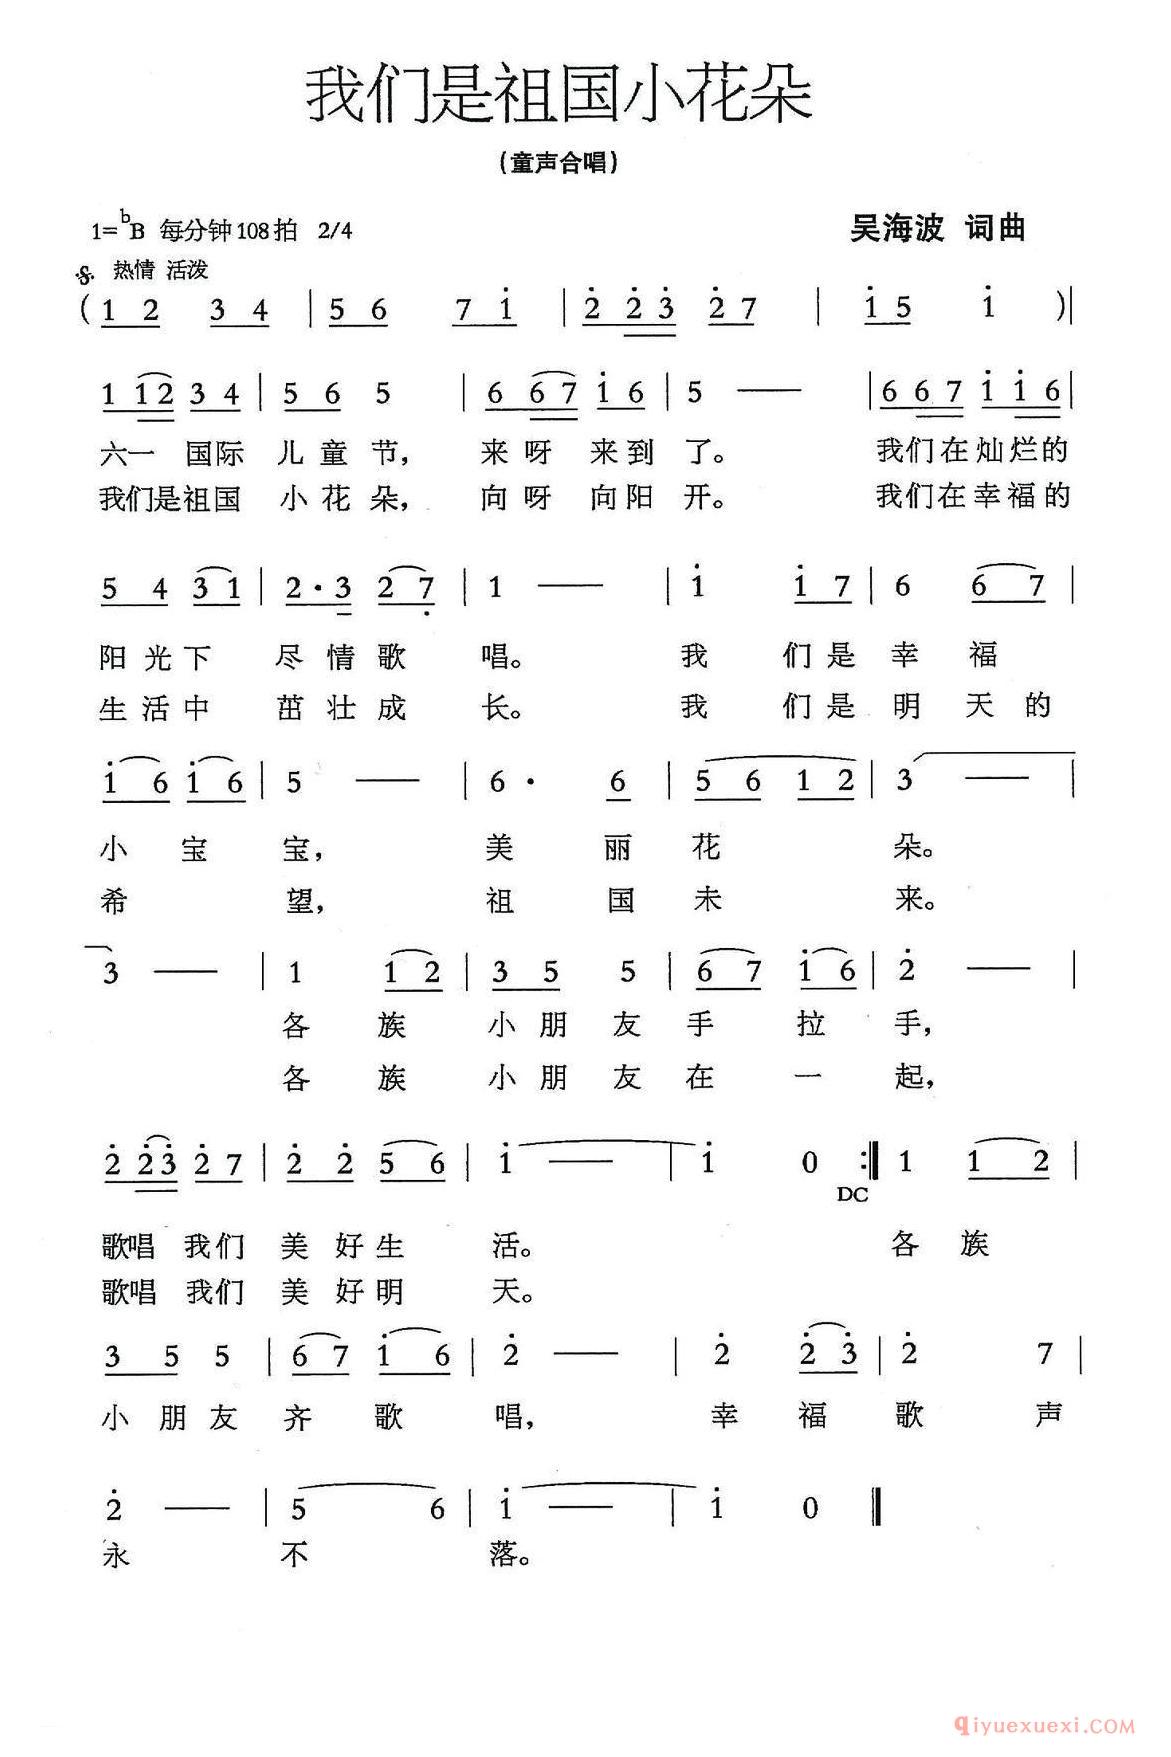 我们是祖国小花朵
(童声合唱)
1=bB 每分钟108拍 2/4 吴海波 词曲
热情 活泼
( 1 2 3 4 | 5 6 7 i | 2̇ 2̇ 3̇ 2̇ 7 | i 5 i )|
1 1 2 3 4 | 5 6 5 | 6 6 7 i 6 | 5 — | 6 6 7 i i 6 |
六一 国际 儿 童 节, 来 呀 来 到 了。 我们在灿烂的
我们是祖国 小 花 朵, 向 呀 向阳 开。 我们在幸福的
5 4 3 1 | 2 · 3 2 7̣ | 1 — | i i 7 | 6 6 7 |
阳 光 下 尽 情 歌 唱。 我 们 是 幸 福
生 活 中 茁 壮 成 长。 我 们 是 明 天 的
i 6 i 6 | 5 — | 6 · 6 | 5 6 1 2 | 3 — |
小 宝 宝, 美 丽 花 朵。
希 望, 祖 国 未 来。
3 — | 1 1 2 | 3 5 5 | 6 7 i 6 | 2̇ — |
各 族 小 朋 友 手 拉 手,
各 族 小 朋 友 在 一 起,
2̇ 2̇ 3̇ 2̇ 7 | 2̇ 2̇ 5 6 | i — | i 0 :‖ 1 1 2 |
DC
歌唱 我们 美 好 生 活。 各 族
歌唱 我们 美 好 明 天。
3 5 5 | 6 7 i 6 | 2̇ — | 2̇ 2̇ 3̇ | 2̇ 7 |
小 朋 友 齐 歌 唱, 幸 福 歌 声
2̇ — | 5 6 | i — | i 0 ‖
永 不 落。
qiyuexuexi.COM